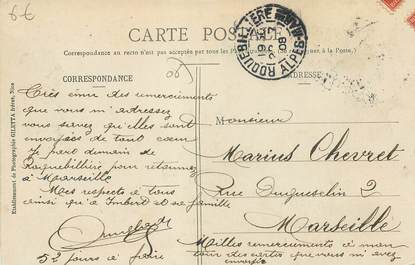 6€
CARTE POSTALE
Correspondance au recto n'est pas acceptée par tous les
à la Poste.)
CORRESPONDANCE
ADRESSE
ROQUEBILLIÈRE
ALPES MAR
Très ému des remerciements
que vous m'adressez
vous savez qu'elles sont
envoyées de tout cœur
Je part demain de
Roquebillière pour retourner
à Marseille
Mes respects à tous
ainsi qu'à Imbert et sa famille
52 jours à faire
Monsieur
Marius Chevret
Rue Duguesclin 2
Marseille
Milles remerciements à mon
tour des cartes que vous m'avez
envoyée
Etablissement de Photographie GILETTA frères, Nice